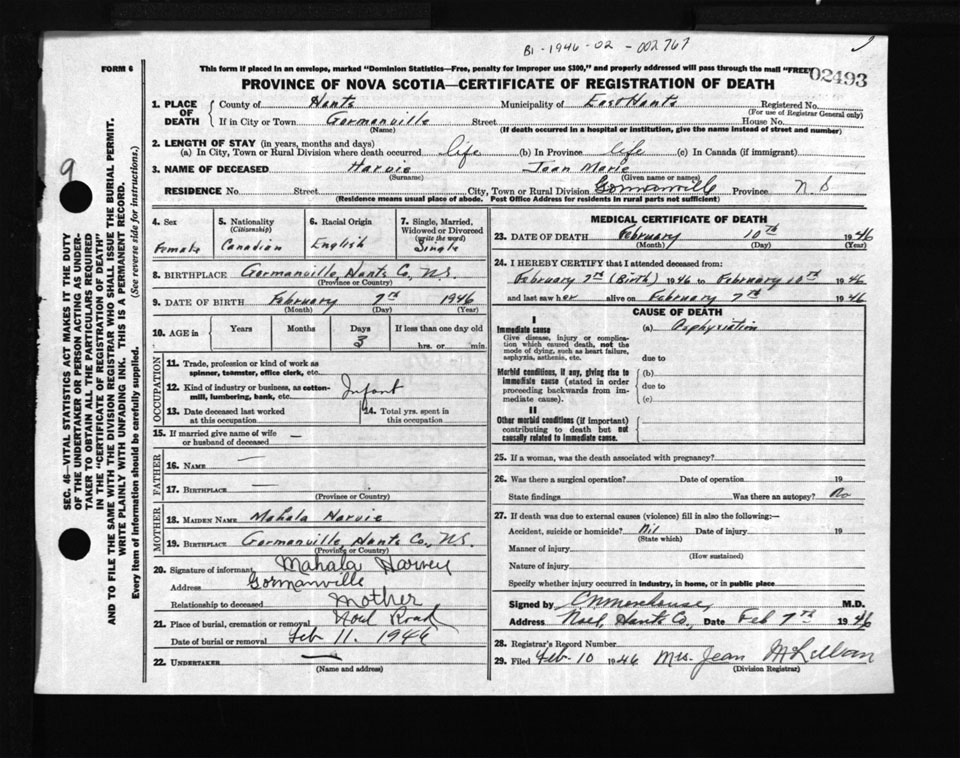 B1-1946-02-002767
FORM 6
This form if placed in an envelope, marked "Dominion Statistics—Free, penalty for improper use $300," and properly addressed will pass through the mail "FREE"
02493
PROVINCE OF NOVA SCOTIA—CERTIFICATE OF REGISTRATION OF DEATH
1. PLACE OF DEATH
County of Hants Municipality of East Hants Registered No.
(For use of Registrar General only)
If in City or Town Gormanville Street House No.
(Name) (If death occurred in a hospital or institution, give the name instead of street and number)
2. LENGTH OF STAY (in years, months and days)
(a) In City, Town or Rural Division where death occurred life (b) In Province life (c) In Canada (if immigrant)
3. NAME OF DECEASED Harvie Jean Merle
(Surname) (Given name or names)
RESIDENCE No Street City, Town or Rural Division Gormanville Province N S
(Residence means usual place of abode. Post Office Address for residents in rural parts not sufficient)
9
SEC. 46—VITAL STATISTICS ACT MAKES IT THE DUTY
OF THE UNDERTAKER OR PERSON ACTING AS UNDER-
TAKER TO OBTAIN ALL THE PARTICULARS REQUIRED
IN THE "CERTIFICATE OF REGISTRATION OF DEATH"
AND TO FILE THE SAME WITH THE DIVISION REGISTRAR WHO SHALL ISSUE THE BURIAL PERMIT.
WRITE PLAINLY WITH UNFADING INK. THIS IS A PERMANENT RECORD.
Every item of information should be carefully supplied. (See reverse side for instructions.)
4. Sex
Female
5. Nationality
(Citizenship)
Canadian
6. Racial Origin
English
7. Single, Married,
Widowed or Divorced
(write the word)
Single
8. BIRTHPLACE Gormanville, Hants Co, N.S.
(Province or Country)
9. DATE OF BIRTH February 7th 1946
(Month) (Day) (Year)
10. AGE in Years Months Days If less than one day old
3 hrs. or min.
OCCUPATION
11. Trade, profession or kind of work as
spinner, teamster, office clerk, etc.
12. Kind of industry or business, as cotton-
mill, lumbering, bank, etc.
Infant
13. Date deceased last worked
at this occupation
14. Total yrs. spent in
this occupation
15. If married give name of wife
or husband of deceased —
FATHER
16. NAME —
17. BIRTHPLACE —
(Province or Country)
MOTHER
18. MAIDEN NAME Mahala Harvie
19. BIRTHPLACE Gormanville, Hants Co., N.S.
(Province or Country)
20. Signature of informant Mahala Harvey
Address Gormanville
Relationship to deceased mother
21. Place of burial, cremation or removal Noel Road
Date of burial or removal Feb 11. 1946
22. UNDERTAKER —
(Name and address)
MEDICAL CERTIFICATE OF DEATH
23. DATE OF DEATH February 10th 1946
(Month) (Day) (Year)
24. I HEREBY CERTIFY that I attended deceased from:
February 7th (Birth) 1946 to February 10th 1946
and last saw her alive on February 7th 1946
CAUSE OF DEATH
I
Immediate cause
Give disease, injury or complica-
tion which caused death, not the
mode of dying, such as heart failure,
asphyxia, asthenia, etc.
(a) Asphyxiation
due to
Morbid conditions, if any, giving rise to
immediate cause (stated in order
proceeding backwards from im-
mediate cause).
(b)
due to
(c)
II
Other morbid conditions (if important)
contributing to death but not
causally related to immediate cause.
25. If a woman, was the death associated with pregnancy?
26. Was there a surgical operation? Date of operation 19
State findings Was there an autopsy? No
27. If death was due to external causes (violence) fill in also the following:—
Accident, suicide or homicide? Nil Date of injury 19
(State which)
Manner of injury
(How sustained)
Nature of injury
Specify whether injury occurred in industry, in home, or in public place
Signed by C N Morehouse, M.D.
Address Noel, Hants Co., Date Feb 7th 1946
28. Registrar's Record Number
29. Filed Feb. 10 1946 Mrs. Jean
(Division Registrar)